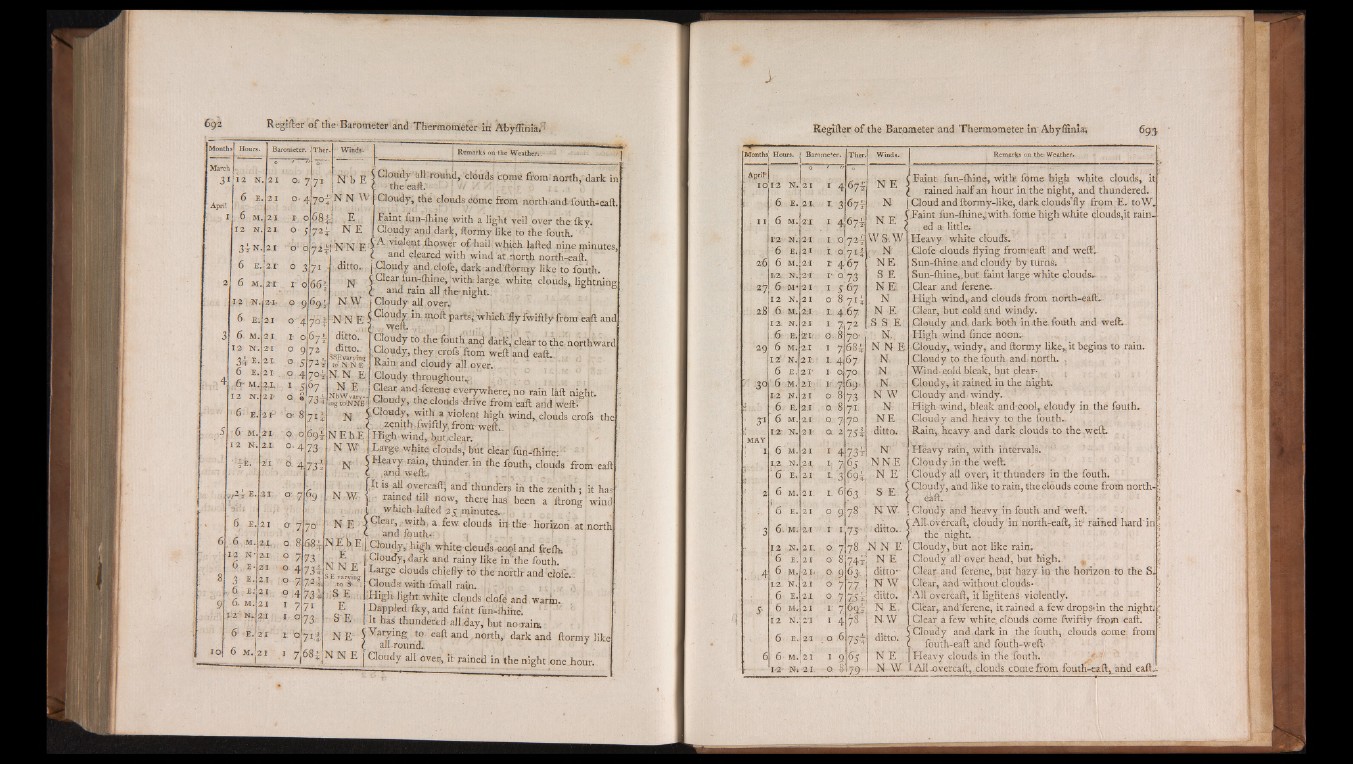 692 Regiſter of the Barometer and Thermometer in Abyſſinia.
Months Hours. Barometer. Ther. Winds. Remarks on the Weather.
o ' "
March
31 12 N. 21 0 7 71 N b E Cloudy all round, clouds come from north, dark in
the eaſt.
6 E. 21 0 4 70½ N N W Cloudy, the clouds come from north and ſouth-eaſt.
April
1 6 M. 21 1 0 68½ E Faint ſun-ſhine with a light veil over the ſky.
12 N. 21 0 5 72½ N E Cloudy and dark, ſtormy like to the ſouth.
3½ N. 21 0 0 72½ N N E A violent ſhower of hail which laſted nine minutes,
and cleared with wind at north north-eaſt.
6 E. 21 0 3 71 ditto. Cloudy and cloſe, dark and ſtormy like to ſouth.
2 6 M. 21 1 0 66½ N Clear ſun-ſhine, with large white clouds, lightning
and rain all the night.
12 N. 21 0 9 69½ N W Cloudy all over.
6 E. 21 0 4 70½ N N E Cloudy in moſt parts, which fly ſwiftly from eaſt and
weſt.
3 6 M. 21 1 0 67½ ditto. Cloudy to the ſouth and dark, clear to the northward
12 N. 21 0 9 72 ditto. Cloudy, they croſs from weſt and eaſt.
3½ E. 21 0 5 72½ SSE varying to NNE Rain and cloudy all over.
6 E. 21 0 4 70½ N. N. E Cloudy throughout.
4 6 M. 21 1 5 67 N E Clear and ſerene everywhere, no rain laſt night.
12 N. 21 0 73½ NbW varying to NNE Cloudy, the clouds drive from eaſt and weſt.
6 E. 21 0 8 71½ N Cloudy, with a violent high wind, clouds croſs the
zenith ſwiftly from weſt.
5 6 M. 21 0 0 69½ N E b E High wind, but clear.
12 N. 21 0 4 73 N W Large white clouds, but clear ſun-ſhine.
½ E. 21 0 4 73½ N Heavy rain, thunder in the ſouth, clouds from eaſt
and weſt.
2½ E. 21 0 7 69 N W It is all overcaſt, and thunders in the zenith; it has
rained till now, there has been a ſtrong wind
which laſted 25 minutes.
6 E. 21 0 7 70 N E Clear, with a few clouds in the horizon at north
and ſouth.
6 6 M. 21 0 8 68½ N E b E Cloudy, high white clouds cool and freſh.
12 N. 21 0 7 73 E Cloudy, dark and rainy like in the ſouth.
6 E. 21 0 4 73½ N N E Large clouds chiefly to the north and cloſe.
8 3 E. 21 0 7 72½ S E varying to S Clouds with ſmall rain.
6 E. 21 0 4 73½ S E High light white clouds cloſe and warm.
9 6 M. 21 1 7 71 E Dappled ſky, and faint ſun-ſhine.
12 N. 21 1 0 73 S E It has thundered all day, but no rain.
6 E. 21 1 0 71½ N E Varying to eaſt and north, dark and ſtormy like
all round.
10 6 M. 21 1 7 68½ N N E Cloudy all over, it rained in the night one hour.
Regiſter of the Barometer and Thermometer in Abyſſinia. 693
Months Hours. Barometer. Ther. Winds. Remarks on the Weather.
o ' "
April
10 12 N. 21 1 4 67½ N E Faint ſun-ſhine, with ſome high white clouds, it
rained half an hour in the night, and thundered.
6 E. 21 1 3 67½ N Cloud and ſtormy-like, dark clouds fly from E. to W.
11 6 M. 21 1 4 67½ N E Faint ſun-ſhine, with ſome high white clouds, it rain-
ed a little.
12 N. 21 1 0 72½ W S W Heavy white clouds.
6 E. 21 1 0 71½ N Cloſe clouds flying from eaſt and weſt.
26 6 M. 21 1 4 67 N E Sun-ſhine and cloudy by turns.
12 N. 21 1 0 73 S E Sun-ſhine, but faint large white clouds.
27 6 M. 21 1 5 67 N E Clear and ſerene.
12 N. 21 0 8 71½ N High wind, and clouds from north-eaſt.
28 6 M. 21 1 4 67 N E Clear, but cold and windy.
12 N. 21 1 7 72 S S E Cloudy and dark both in the ſouth and weſt.
6 E. 21 0 8 70 N High wind ſince noon.
29 6 M. 21 1 7 68½ N N E Cloudy, windy, and ſtormy like, it begins to rain.
12 N. 21 1 4 67 N Cloudy to the ſouth and north.
6 E. 21 1 0 70 N Wind cold bleak, but clear.
30 6 M. 21 1 7 69 N Cloudy, it rained in the night.
12 N. 21 0 8 73 N W Cloudy and windy.
6 E. 21 0 8 71 N High wind, bleak and cool, cloudy in the ſouth.
31 6 M. 21 0 7 70 N E Cloudy and heavy to the ſouth.
12 N. 21 0 2 75½ ditto. Rain, heavy and dark clouds to the weſt.
MAY
1 6 M. 21 1 4 73½ N Heavy rain, with intervals.
12 N. 21 1 7 65 N N E Cloudy in the weſt.
6 E. 21 1 3 69½ N E Cloudy all over, it thunders in the ſouth.
2 6 M. 21 1 6 63 S E Cloudy, and like to rain, the clouds come from north-
eaſt.
6 E. 21 0 9 78 N W Cloudy and heavy in ſouth and weſt.
3 6 M. 21 1 1 75 ditto. All overcaſt, cloudy in north-eaſt, it rained hard in
the night.
12 N. 21 0 7 78 N N E Cloudy, but not like rain.
6 E. 21 0 8 74½ N E Cloudy all over head, but high.
4 6 M. 21 0 9 63 ditto Clear and ſerene, but hazy in the horizon to the S.
12 N. 21 0 7 77 N W Clear, and without clouds.
6 E. 21 0 7 75½ ditto. All overcaſt, it lightens violently.
5 6 M. 21 1 7 69½ N E Clear, and ſerene, it rained a few drops in the night.
12 N. 21 1 4 78 N W Clear a few white, clouds come ſwiftly from eaſt.
6 E. 21 0 6 75½ ditto. Cloudy and dark in the ſouth, clouds come from
ſouth-eaſt and ſouth-weſt
6 6 M. 21 1 9 65 N E Heavy clouds in the ſouth.
12 N. 21 0 8 79 N W All overcaſt, clouds come from ſouth-eaſt, and eaſt.